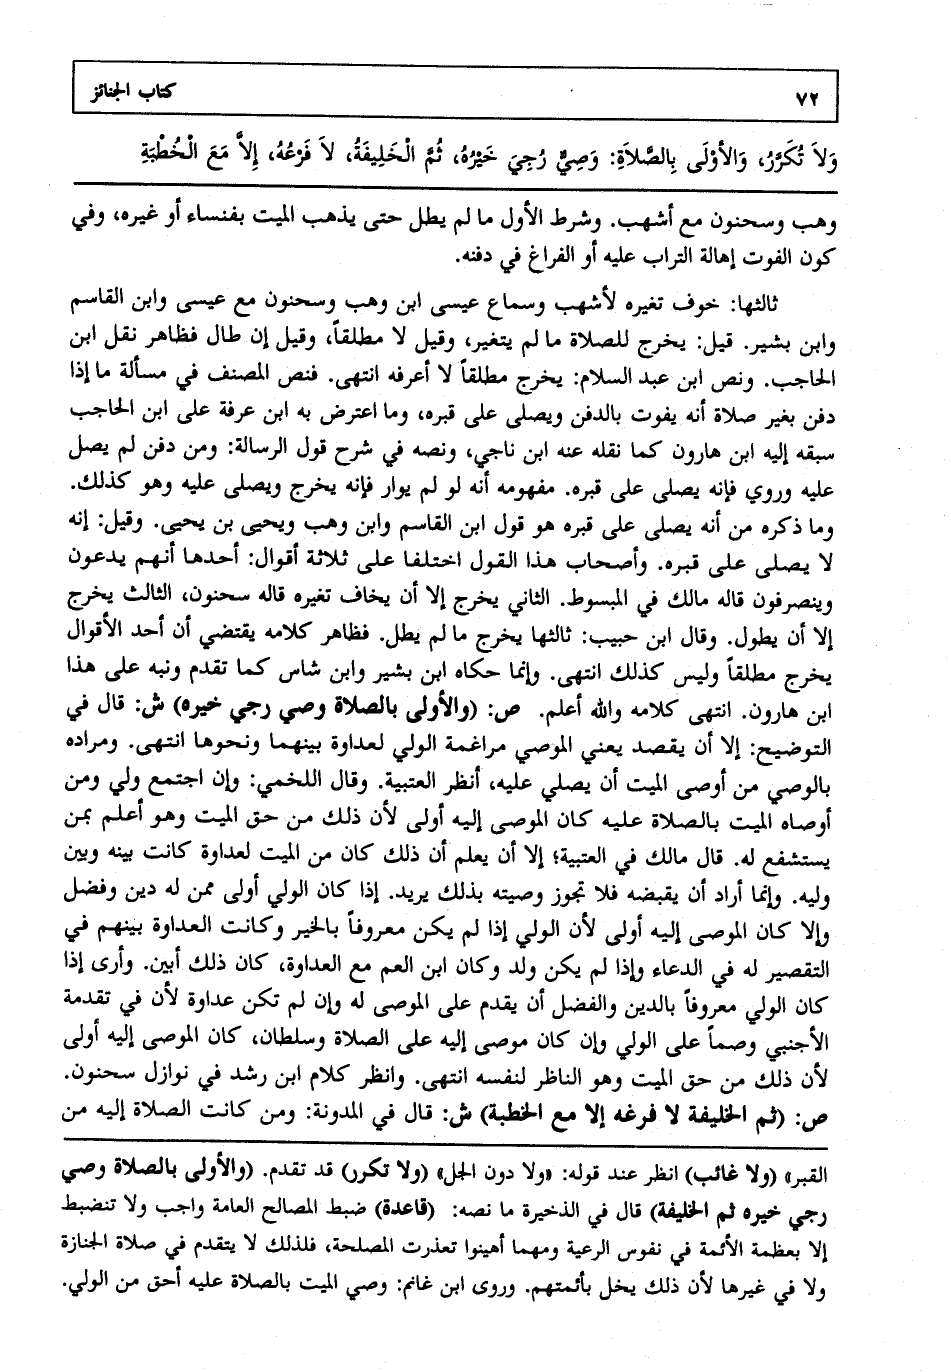 ٧٢
كتاب الجنائز
وَلاَ تُكَرَّرُ، وَالأَوْلَى بِالصَّلاَةِ: وَصِيٌّ رُجِيَ خَيْرُهُ، ثُمَّ الْخَلِيفَةُ، لاَ فَرْعُهُ، إِلاَّ مَعَ الْخُطْبَةِ
وهب وسحنون مع أشهب. وشرط الأول ما لم يطل حتى يذهب الميت بفنساء أو غيره، وفي
كون الفوت إهالة التراب عليه أو الفراغ في دفنه.
ثالثها: خوف تغيره لأشهب وسماع عيسى ابن وهب وسحنون مع عيسى وابن القاسم
وابن بشير. قيل: يخرج للصلاة ما لم يتغير، وقيل لا مطلقاً، وقيل إن طال فظاهر نقل ابن
الحاجب. ونص ابن عبد السلام: يخرج مطلقاً لا أعرفه انتهى. فنص المصنف في مسألة ما إذا
دفن بغير صلاة أنه يفوت بالدفن ويصلى على قبره، وما اعترض به ابن عرفة على ابن الحاجب
سبقه إليه ابن هارون كما نقله عنه ابن ناجي، ونصه في شرح قول الرسالة: ومن دفن لم يصل
عليه وروي فإنه يصلى على قبره. مفهومه أنه لو لم يوار فإنه يخرج ويصلى عليه وهو كذلك.
وما ذكره من أنه يصلى على قبره هو قول ابن القاسم وابن وهب ويحيى بن يحيى. وقيل: إنه
لا يصلى على قبره. وأصحاب هذا القول اختلفا على ثلاثة أقوال: أحدها أنهم يدعون
وينصرفون قاله مالك في المبسوط. الثاني يخرج إلا أن يخاف تغيره قاله سحنون، الثالث يخرج
إلا أن يطول. وقال ابن حبيب: ثالثها يخرج ما لم يطل. فظاهر كلامه يقتضي أن أحد الأقوال
يخرج مطلقاً وليس كذلك انتهى. وإنما حكاه ابن بشير وابن شاس كما تقدم ونبه على هذا
ابن هارون. انتهى كلامه والله أعلم. ص: (والأولى بالصلاة وصي رجي خيره) ش: قال في
التوضيح: إلا أن يقصد يعني الموصي مراغمة الولي لعداوة بينهما ونحوها انتهى. ومراده
بالوصي من أوصى الميت أن يصلي عليه، أنظر العتبية. وقال اللخمي: وإن اجتمع ولي ومن
أوصاه الميت بالصلاة عليه كان الموصى إليه أولى لأن ذلك من حق الميت وهو أعلم بمن
يستشفع له. قال مالك في العتبية؛ إلا أن يعلم أن ذلك كان من الميت لعداوة كانت بينه وبين
وليه. وإنما أراد أن يقبضه فلا تجوز وصيته بذلك يريد. إذا كان الولي أولى ممن له دين وفضل
وإلا كان الموصى إليه أولى لأن الولي إذا لم يكن معروفاً بالخير وكانت العداوة بينهم في
التقصير له في الدعاء وإذا لم يكن ولد وكان ابن العم مع العداوة، كان ذلك أبين. وأرى إذا
كان الولي معروفاً بالدين والفضل أن يقدم على الموصى له وإن لم تكن عداوة لأن في تقدمة
الأجنبي وصماً على الولي وإن كان موصى إليه على الصلاة وسلطان، كان الموصى إليه أولى
لأن ذلك من حق الميت وهو الناظر لنفسه انتهى. وانظر كلام ابن رشد في نوازل سحنون.
ص: (ثم الخليفة لا فرغه إلا مع الخطبة) ش: قال في المدونة: ومن كانت الصلاة إليه من
القبر» (ولا غائب) انظر عند قوله: «ولا دون الجل» (ولا تكرر) قد تقدم. (والأولى بالصلاة وصي
رجي خيره ثم الخليفة) قال في الذخيرة ما نصه: (قاعدة) ضبط المصالح العامة واجب ولا تنضبط
إلا بعظمة الأئمة في نفوس الرعية ومهما أهينوا تعذرت المصلحة، فلذلك لا يتقدم في صلاة الجنازة
ولا في غيرها لأن ذلك يخل بأئمتهم. وروى ابن غانم: وصي الميت بالصلاة عليه أحق من الولي.